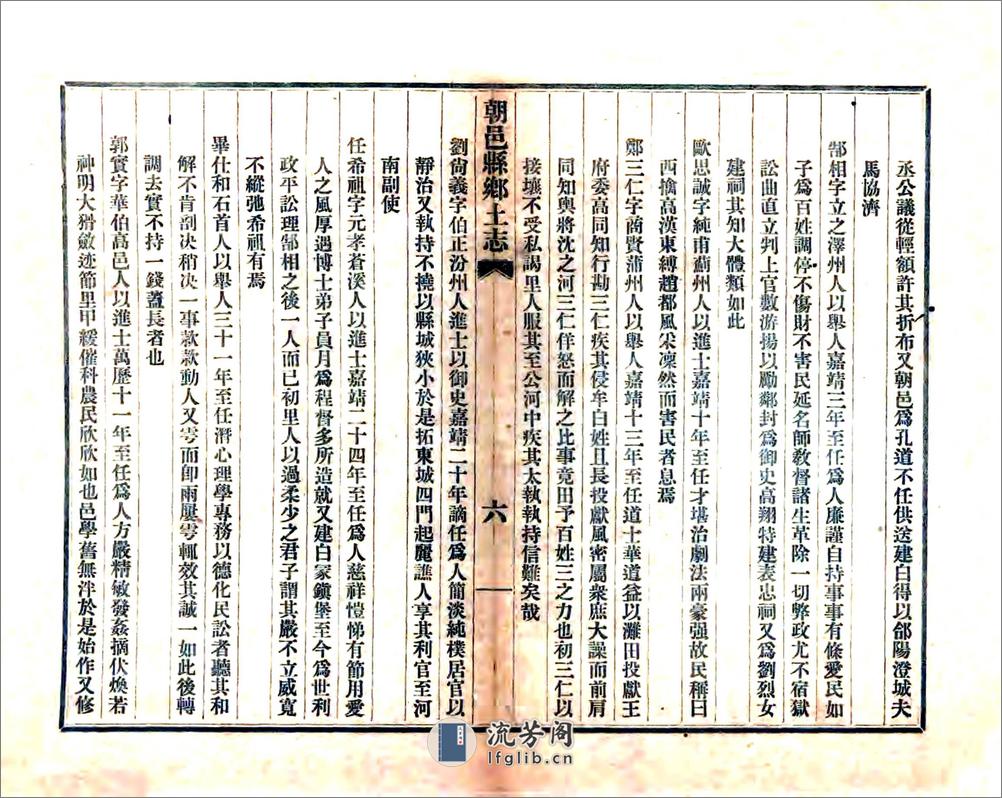 丞公議從輕額許其折布又朝邑爲孔道不任供送建白得以郃陽澄城夫
馬協濟
郜相字立之澤州人以舉人嘉靖三年至任爲人廉謹自持事事有條愛民如
子爲百姓調停不傷財不害民延名師教督諸生革除一切弊政尤不宿獄
訟曲直立判上官數游揚以勵鄰封爲御史高翔特建表忠祠又爲劉烈女
建祠其知大體類如此
歐思誠字純甫薊州人以進士嘉靖十年至任才堪治劇法兩豪强故民稱曰
西擒高漢東縛趙都風采凜然而害民者息焉
鄭三仁字商賢蒲州人以舉人嘉靖十三年至任道士華道益以灘田投獻王
府委高同知行勘三仁疾其侵牟白姓且長投獻風密屬衆庶大譟而前肩
同知輿將沈之河三仁佯怒而解之比事竟田予百姓三之力也初三仁以
接壤不受私謁里人服其至公河中疾其太執執持信難矣哉
朝邑縣鄉土志
六
劉尙義字伯正汾州人進士以御史嘉靖二十年謫任爲人簡淡純樸居官以
靜治又執持不撓以縣城狹小於是拓東城四門起麗譙人享其利官至河
南副使
任希祖字元孝蒼溪人以進士嘉靖二十四年至任爲人慈祥愷悌有節用愛
人之風厚遇博士弟子員月爲程督多所造就又建白冢鎭堡至今爲世利
政平訟理郜相之後一人而已初里人以過柔少之君子謂其嚴不立威寬
不縱弛希祖有焉
畢仕和石首人以舉人三十一年至任潛心理學專務以德化民訟者聽其和
解不肯剖决稍决一事款款動人又雩而卽雨屢雩輒效其誠一如此後轉
調去實不持一錢蓋長者也
郭實字華伯高邑人以進士萬歷十一年至任爲人方嚴精敏發姦摘伏煥若
神明大猾斂迹節里甲緩催科農民欣欣如也邑學舊無泮於是始作又修
流芳阁
lfglib.cn